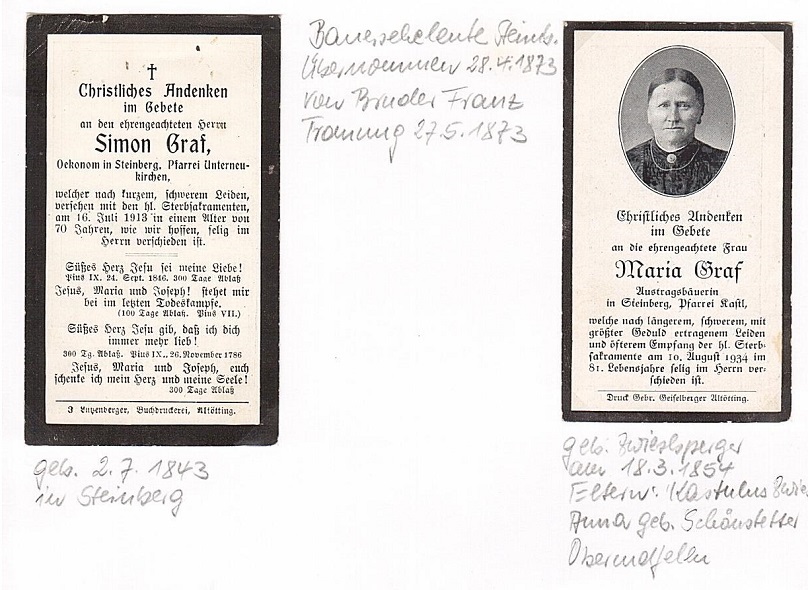 ✝
Christliches Andenken
im Gebete
an den ehrengeachteten Herrn
Simon Graf,
Oekonom in Steinberg, Pfarrei Unterneu-
kirchen,
welcher nach kurzem, schwerem Leiden,
versehen mit den hl. Sterbsakramenten,
am 16. Juli 1913 in einem Alter von
70 Jahren, wie wir hoffen, selig im
Herrn verschieden ist.
Süßes Herz Jesu sei meine Liebe!
Pius IX. 24. Sept. 1846. 300 Tage Ablaß
Jesus, Maria und Joseph! stehet mir
bei im letzten Todeskampfe.
(100 Tage Ablaß. Pius VII.)
Süßes Herz Jesu gib, daß ich dich
immer mehr lieb!
300 Tg. Ablaß. Pius IX., 26. November 1786
Jesus, Maria und Joseph, euch
schenke ich mein Herz und meine Seele!
300 Tage Ablaß
J Lutzenberger, Buchdruckerei, Altötting.
geb. 2.7.1843
in Steinberg
Bauerseheleute Steinb.
Übernommen 28.4.1873
von Bruder Franz
Trauung 27.5.1873
Christliches Andenken
im Gebete
an die ehrengeachtete Frau
Maria Graf
Austragsbäuerin
in Steinberg, Pfarrei Kastl,
welche nach längerem, schwerem, mit
größter Geduld ertragenem Leiden
und öfterem Empfang der hl. Sterb-
sakramente am 10. August 1934 im
81. Lebensjahre selig im Herrn ver-
schieden ist.
Druck Gebr. Geiselberger Altötting.
geb. Zwieslsperger
am 18.3.1854
Eltern: Kastulus Zwies
Anna geb. Schönstetter